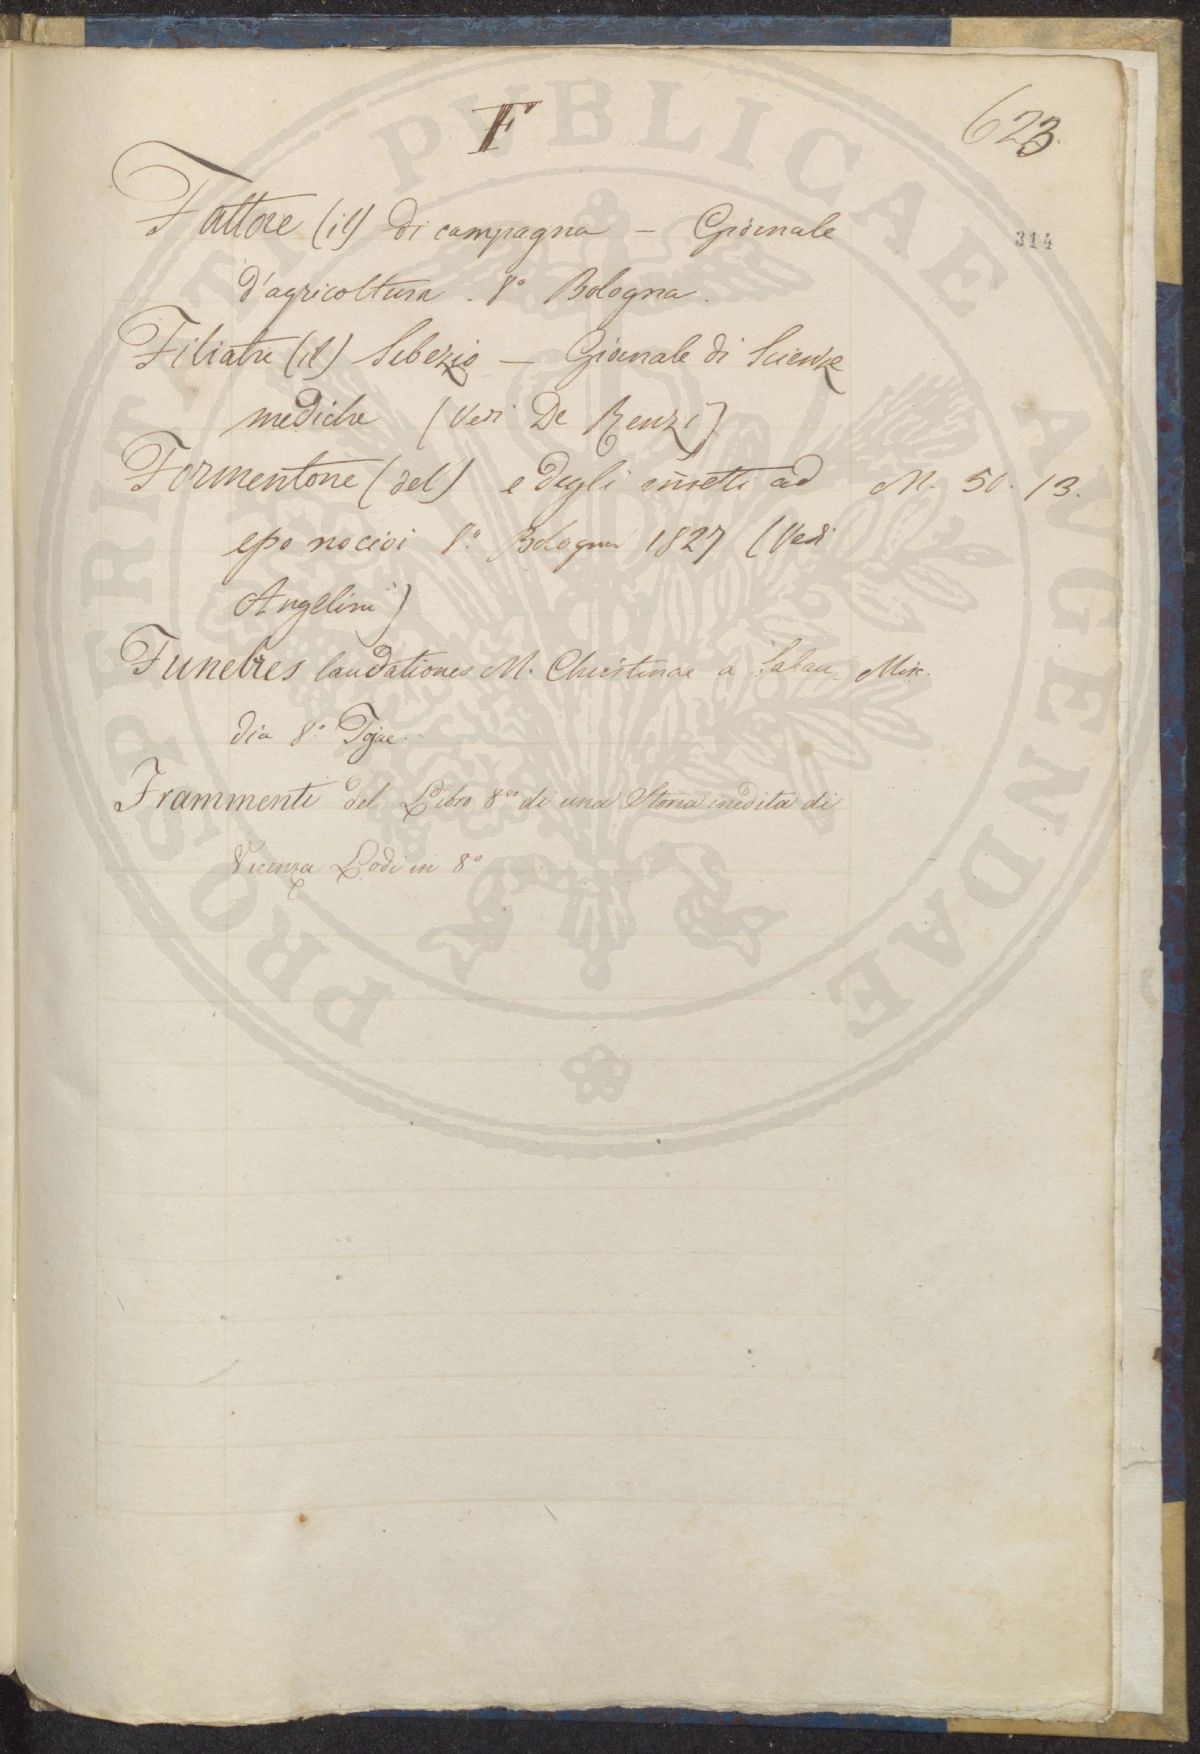 F
623.
314
Fattore (il) di campagna – Giornale
d'agricoltura. 8° Bologna.
Filiatre (il) Sebezio – Giornale di Scienze
mediche (Vedi De Renzi)
Formentone (del) e degli insetti ad M. 50. 13.
esso nocivi 8.° Bologna 1827 (Vedi
Angelini)
Funebres laudationes M. Christinae a Sabau- Mix.
dia 8.°
Frammenti del Libro 8.vo di una Storia inedita di
Vicenza Lodi in 8°
PROSPERITATI PVBLICAE AVGENDAE